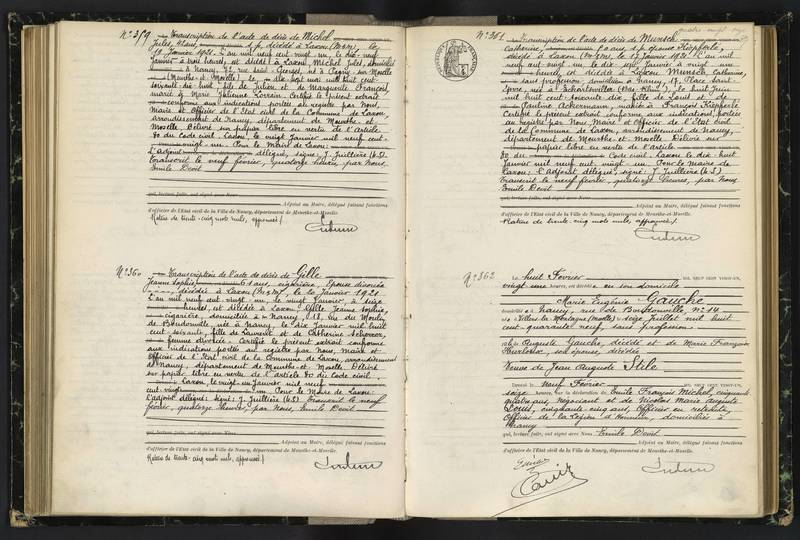 N° 359 Transcription de l'acte de décès de Michel
Jules, décédé à Laxou (M&M), le
19 Janvier 1921. L'an mil neuf cent vingt un, le dix-neuf
Janvier à trois heures, est décédé à Laxou, Michel Jules, domicilié
à Nancy, 72, rue Saint-Georges, né à Pagny sur Moselle
(Meurthe et Moselle) le dix-sept mai mil huit cent
soixante dix huit, fils de Julien et de Marguerite François,
marié à Marie Julienne Lorrain. Certifié le présent extrait
conforme aux indications portées au registre par Nous,
Maire et Officier de l'Etat civil de la Commune de Laxou,
arrondissement de Nancy, département de Meurthe et
Moselle. Délivré sur papier libre en vertu de l'article
80 du Code civil. Laxou, le vingt Janvier mil neuf cent
vingt-un. Pour le Maire de Laxou:
L'adjoint délégué, signé: J. Juillière (L.S.)
Transcrit le neuf février, quatorze heures, par Nous,
Emile Devit
qui, lecture faite, ont signé avec Nous
Adjoint au Maire, délégué faisant fonctions
d'officier de l'Etat civil de la Ville de Nancy, département de Meurthe-et-Moselle.
Rature de trente-cinq mots nuls, approuvée!
N° 360 Transcription de l'acte de décès de Gille
Jeanne Sophie, 61 ans, cigarière, Epouse divorcée
décédée à Laxou (M&M), le 20 Janvier 1921
L'an mil neuf cent vingt-un, le vingt Janvier, à seize
heures, est décédée à Laxou Gille Jeanne Sophie,
cigarière, domiciliée à Nancy, 18, rue du Moulin
de Boudonville, née à Nancy, le dix Janvier mil huit
cent soixante, fille de Laurent et de Catherine
femme divorcée. Certifié le présent extrait conforme
aux indications portées au registre par Nous, Maire et
Officier de l'Etat civil de la Commune de Laxou, arrondissement
de Nancy, département de Meurthe-et-Moselle. Délivré
sur papier libre en vertu de l'article 80 du Code civil.
Laxou, le vingt-un Janvier mil neuf
cent-vingt-un. Pour le Maire de Laxou:
L'adjoint délégué: signé: J. Juillière (L.S.) Transcrit le neuf
février, quatorze heures, par Nous, Emile Devit
qui, lecture faite, ont signé avec Nous
Adjoint au Maire, délégué faisant fonctions
d'officier de l'Etat civil de la Ville de Nancy, département de Meurthe-et-Moselle.
Rature de trente-cinq mots nuls, approuvée!
N° 361 Transcription de l'acte de décès de Munsch
Catherine, 50 ans, s.p., épouse Kiepferlé,
décédée à Laxou (M&M), le 17 Janvier 1921. L'an mil
neuf cent vingt-un, le dix sept Janvier à vingt un
heures, est décédée à Laxou Munsch Catherine,
sans profession, domiciliée à Nancy, 17, Place Saint
Epvre, née à (Bas-Rhin), le huit Juin
mil huit cent soixante dix, fille de Louis et de
Pauline Ackermann, mariée à François Kiepferlé
Certifié le présent extrait conforme aux indications portées
au registre par Nous, Maire et Officier de l'Etat civil
de la Commune de Laxou, arrondissement de Nancy,
département de Meurthe et Moselle. Délivré sur
papier libre en vertu de l'article
80 du Code civil. Laxou le dix-huit
Janvier mil neuf cent vingt un. Pour le Maire de
Laxou: l'adjoint délégué, signé: J. Juillière (L.S.)
Transcrit le neuf février, quatorze heures, par Nous
Emile Devit
qui, lecture faite, ont signé avec Nous
Adjoint au Maire, délégué faisant fonctions
d'officier de l'Etat civil de la Ville de Nancy, département de Meurthe-et-Moselle.
Rature de trente-cinq mots nuls, approuvée!
N° 362 Le huit Février mil neuf cent vingt-un,
vingt une heures, est décédée en son domicile
Marie Eugénie Gauche
domiciliée à Nancy, rue de Boudonville, N° 14
née à (Moselle) seize Juillet mil huit
cent quarante neuf, sans profession
Auguste Gauche, décédé et de Marie Françoise
son épouse, décédée
Veuve de Jean Auguste Stile
Dressé le neuf Février mil neuf cent vingt-un,
seize heures, sur la déclaration de Emile François Michel, cinquante
quatre ans, négociant et de Nicolas Marie Auguste
Louis, cinquante cinq ans, Officier en retraite,
Officier de la Légion d'honneur, domiciliés à
Nancy
qui, lecture faite, ont signé avec Nous Emile Devit
Adjoint au Maire, délégué faisant fonctions
d'officier de l'Etat civil de la Ville de Nancy, département de Meurthe-et-Moselle.